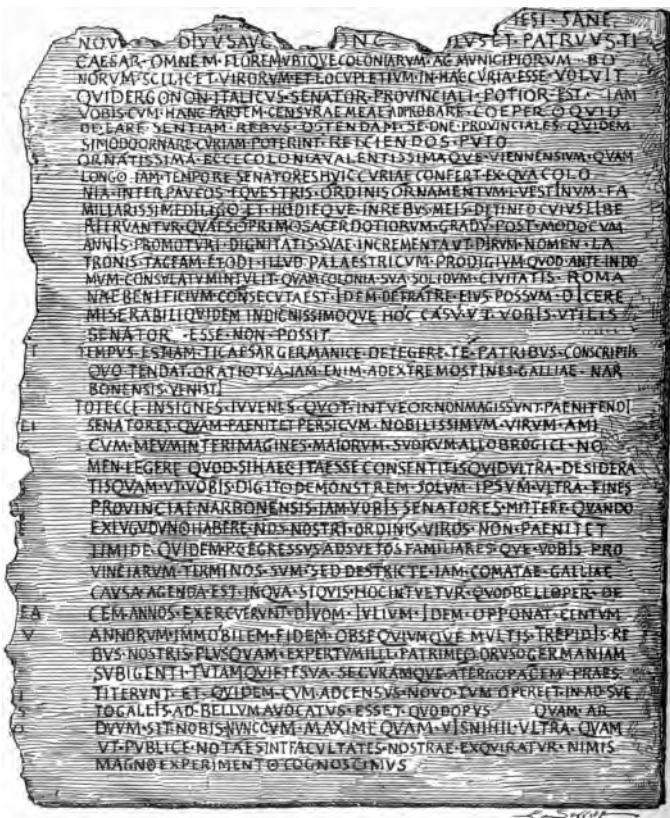 IESI · SANE
NOVO · DIVVS AVG · NC · LVS ET · PATRVVS · TI
CAESAR · OMNEM · FLOREM VBIQVE COLONIARVM · AC MVNICIPIORVM · BO
NORVM SCILICET VIRORVM ET LOCVPLETIVM · IN HAC CVRIA ESSE · VOLVIT
QVID ERGO NON · ITALICVS · SENATOR · PROVINCIALI · POTIOR · EST · IAM
VOBIS · CVM · HANC PARTEM · CENSVRAE MEAE ADPROBARE · COEPERO QVID
DE EA RE · SENTIAM · REBVS · OSTENDAM · SED NE · PROVINCIALES · QVIDEM
SI MODO ORNARE · CVRIAM · POTERINT · REICIENDOS · PVTO
ORNATISSIMA · ECCE COLONIA VALENTISSIMAQVE · VIENNENSIVM · QVAM
LONGO · IAM · TEMPORE · SENATORES HVIC CVRIAE CONFERT · EX · QVA COLO
NIA · INTER · PAVCOS · EQVESTRIS · ORDINIS ORNAMENTVM · L VESTINVM · FA
MILIARISSIME DILIGO · ET · HODIEQVE · IN REBVS · MEIS · DETINEO CVIVS LIBE
RI FRVANTVR · QVAESO PRIMO SACERDOTIORVM · GRADV · POST · MODO CVM
ANNIS · PROMOTVRI · DIGNITATIS · SVAE · INCREMENTA VT · DIRVM · NOMEN · LA
TRONIS · TACEAM · ET ODI · ILLVD · PALAESTRICVM · PRODIGIVM QVOD · ANTE · IN DO
MVM · CONSVLATVM INTVLIT · QVAM COLONIA · SVA SOLIDVM · CIVITATIS · ROMA
NAE BENIFICIVM · CONSECVTA EST · IDEM · DE FRATRE · EIVS · POSSVM · DICERE
MISERABILI QVIDEM · INDIGNISSIMOQVE HOC · CASV VT · VOBIS · VTILIS
SENATOR · ESSE · NON · POSSIT
T TEMPVS · EST IAM · TI CAESAR GERMANICE · DETEGERE · TE · PATRIBVS · CONSCRIPTIS
QVO TENDAT · ORATIO TVA · IAM · ENIM · AD EXTREMOS FINES · GALLIAE · NAR
BONENSIS · VENISTI
TOT ECCE · INSIGNES · IVVENES · QVOT · INTVEOR · NON MAGIS SVNT · PAENITENDI
EI SENATORES · QVAM · PAENITET PERSICVM · NOBILISSIMVM · VIRVM · AMI
CVM · MEVM INTER IMAGINES · MAIORVM · SVORVM ALLOBROGICI · NO
MEN · LEGERE QVOD · SI HAEC ITA ESSE CONSENTITIS QVID VLTRA · DESIDERA
TIS QVAM · VT · VOBIS · DIGITO DEMONSTREM · SOLVM · IPSVM · VLTRA · FINES
PROVINCIAE NARBONENSIS · IAM · VOBIS · SENATORES · MITTERE · QVANDO
EX LVGVDVNO HABERE · NOS · NOSTRI · ORDINIS · VIROS · NON · PAENITET
TIMIDE · QVIDEM · P C EGRESSVS ADSVETOS FAMILIARESQVE · VOBIS · PRO
VINCIARVM · TERMINOS · SVM · SED DESTRICTE · IAM · COMATAE · GALLIAE
CAVSA · AGENDA · EST · IN QVA · SI QVIS · HOC INTVETVR · QVOD BELLO PER · DE
EA CEM · ANNOS · EXERCVERVNT · DIVOM · IVLIVM · IDEM · OPPONAT · CENTVM
V ANNORVM · IMMOBILEM · FIDEM · OBSEQVIVMQVE · MVLTIS · TREPIDIS · RE
BVS · NOSTRIS · PLVSQVAM · EXPERTVM ILLI · PATRI MEO DRVSO GERMANIAM
SVBIGENTI · TVTAM QVIETE SVA · SECVRAMQVE · A TERGO PACEM · PRAES
I TITERVNT · ET · QVIDEM · CVM · AD CENSVS · NOVO · TVM OPERE ET · IN AD SVE
S TO GALLIS · AD · BELLVM AVOCATVS · ESSET · QVOD OPVS QVAM · AR
O DVVM · SIT · NOBIS NVNC CVM · MAXIME QVAM · VIS NIHIL · VLTRA · QVAM
VT · PVBLICE · NOTAE SINT FACVLTATES · NOSTRAE · EXQVIRATVR · NIMIS
MAGNO EXPERIMENTO COGNOSCIMVS